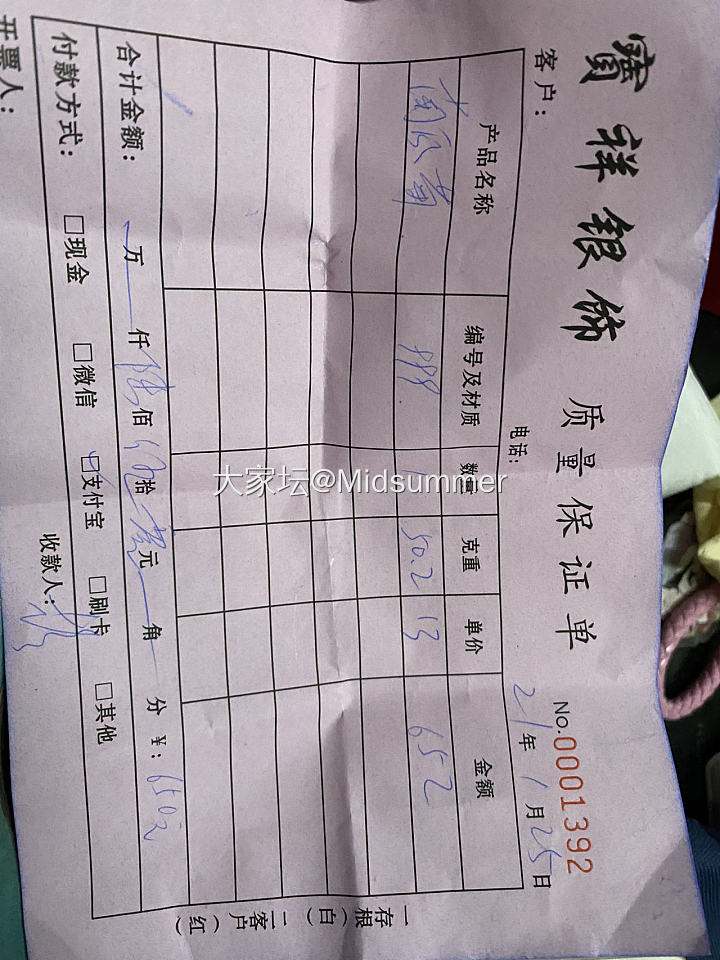 寳祥银饰 质量保证单
No.0001392
客户： 电话： 21年1月25日
产品名称 编号及材质 数量 克重 单价 金额
999 1 50.2 13 652
合计金额： 万 仟 陆 佰 伍 拾 零 元 角 分 ¥：650元
付款方式： □现金 □微信 □支付宝 □刷卡 □其他
开票人： 收款人：
一存根（白） 二客户（红）
大家坛@Midsummer